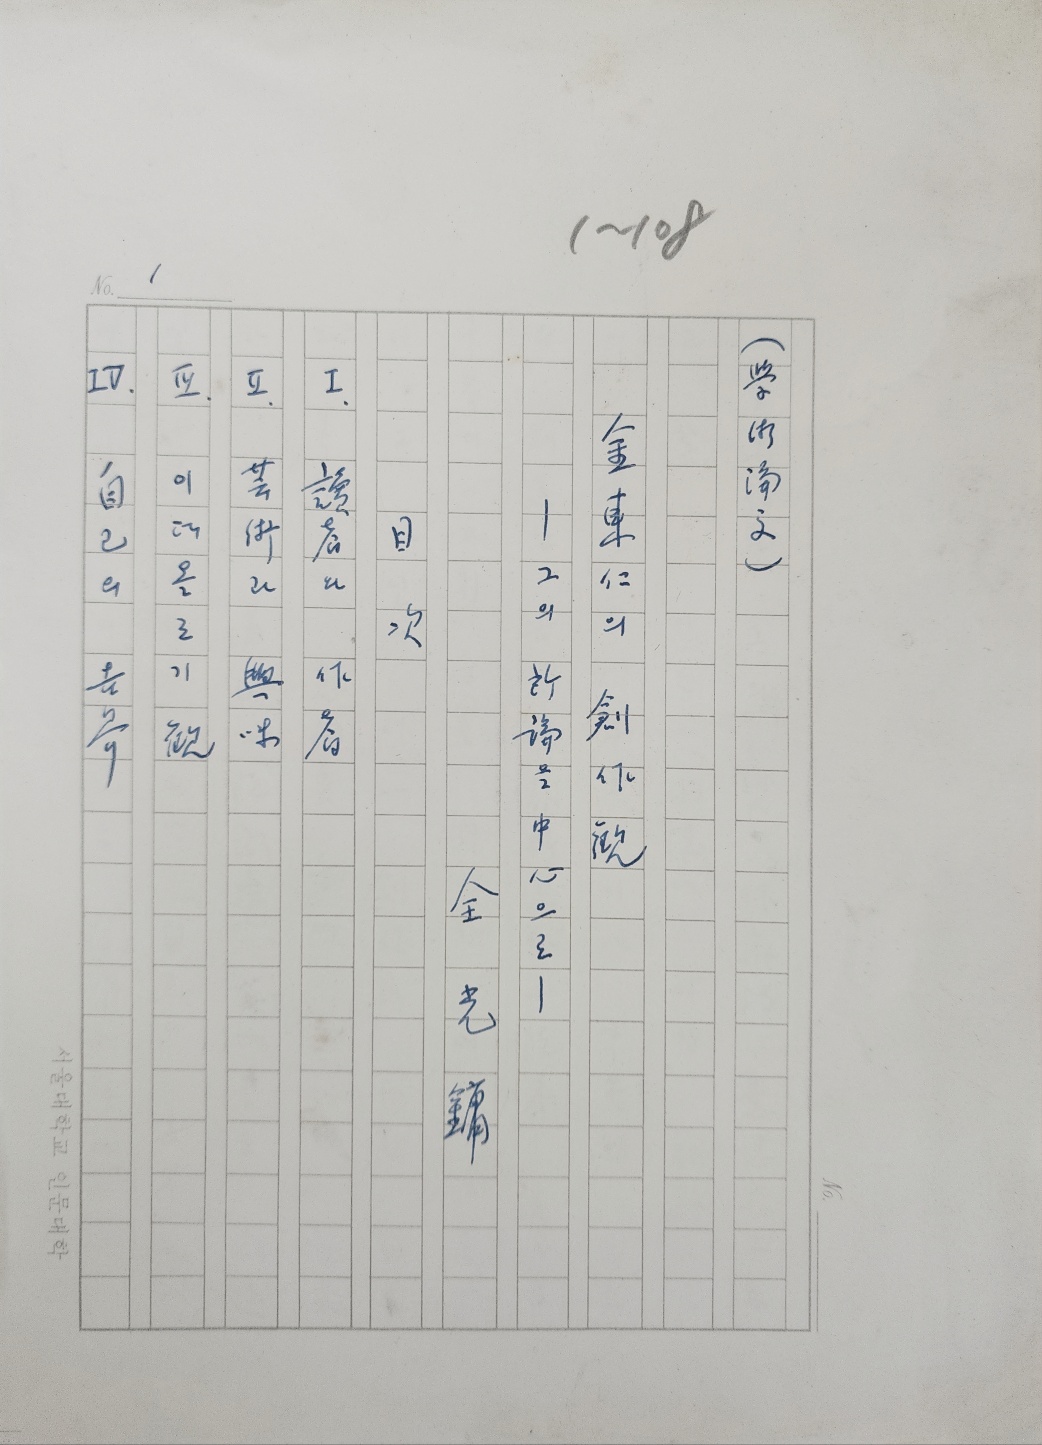 1~108
No. 1
(學術論文)
金東仁의 創作觀
―그의 評論을 中心으로―
全光鏞
目次
I. 讀者와 作者
II. 芸術과 興味
III. 이데올로기觀
IV. 自己의
No.
서울대학교 인문대학